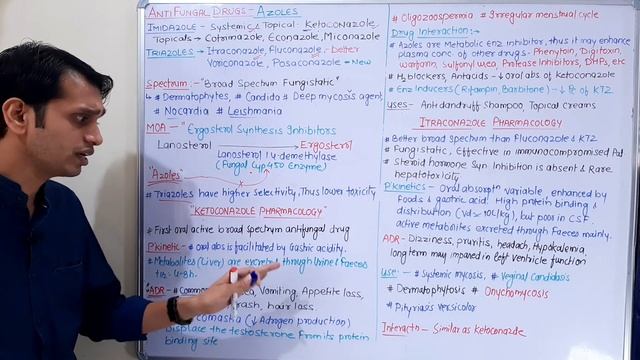 ANTIFUNGAL DRUGS - AZOLES
IMIDAZOLE - Systemic & Topical - Ketoconazole
Topicals → Cotrimazole, Econazole, Miconazole
TRIAZOLES - Itraconazole, Fluconazole - Better
Voriconazole, Posaconazole - New
Spectrum - "Broad Spectrum Fungistatic"
↳ # Dermatophytes, # Candida # Deep mycosis agent,
# Nocardia # Leishmania
MOA - "Ergosterol Synthesis Inhibitors
Lanosterol → Ergosterol
Lanosterol 14-demethylase
(Fungal Cyp450 Enzyme)
"Azoles"
* Triazoles have higher Selectivity, Thus lower toxicity
"KETOCONAZOLE PHARMACOLOGY"
* First oral active broad spectrum antifungal drug
P'kinetic - # oral abs is facilitated by Gastric acidity.
# Metabolites (Liver) are excreted through Urine & Faeces
ADR - # Common Vomiting, Appetite loss,
rash, hair loss.
(↓ Adrogen production)
Displace the testosterone from its protein
binding site
# Oligozoospermia # Irregular menstrual cycle
Drug Interaction:-
* Azoles are Metabolic Enz Inhibitor, thus it may enhance
plasma conc. of other drugs - Phenytoin, Digitoxin,
warfarin, sulfonyl urea, Protease Inhibitors, DHPs, etc
* H₂ blockers, Antacids - ↓ Oral abs of ketoconazole
* Enz Inducers (Rifampin, Barbitone) - ↓ of KTZ
uses - Anti dandruff Shampoo Topical creams
ITRACONAZOLE PHARMACOLOGY
* Better broad spectrum than Fluconazole & KTZ
* Fungistatic, Effective in Immunocompromised
* Steroid hormone Syn Inhibition is absent & Rare
hepatotoxicity
P'kinetics - Oral absorptn variable, enhanced by
Foods & gastric acid. High protein binding &
distribution (Vd ~ 10L/kg), but poor in CSF.
active metabolites excreted through Faeces mainly.
ADR - Dizziness, pruritis, headach, Hypokalemia
long term may impaired in Left Ventricle function
use - # Systemic mycosis, # Vaginal Candidasis
# Dermatophytosis # Onychomycosis
# Pityriasis versicolor
Interactn - Similar as ketoconazole